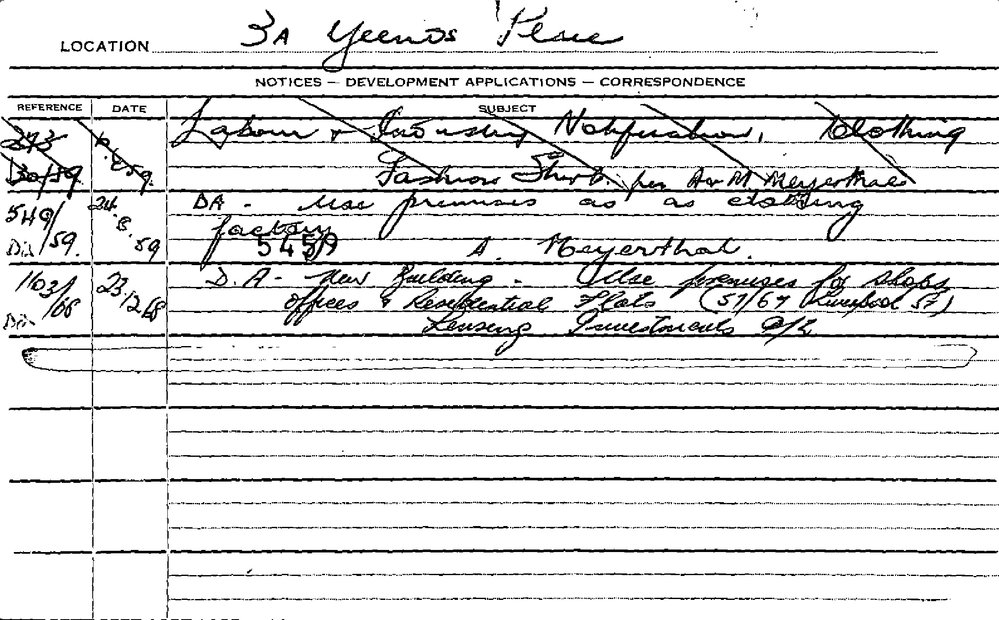 LOCATION 3A Yeends Place
NOTICES — DEVELOPMENT APPLICATIONS — CORRESPONDENCE
REFERENCE DATE SUBJECT
273 Labour & Industry Notification. Clothing
130/59 59. Fashion Shirt. per A & M Meyerthal
549/ 24. DA - Use premises as as clothing
59. 8. 59 factory
5459 A. Meyerthal.
1103/ 23. D.A - New Building - Use premises for shops
68 12 68 offices & Residential Flats (57/67 Liverpool St)
Investments P/L